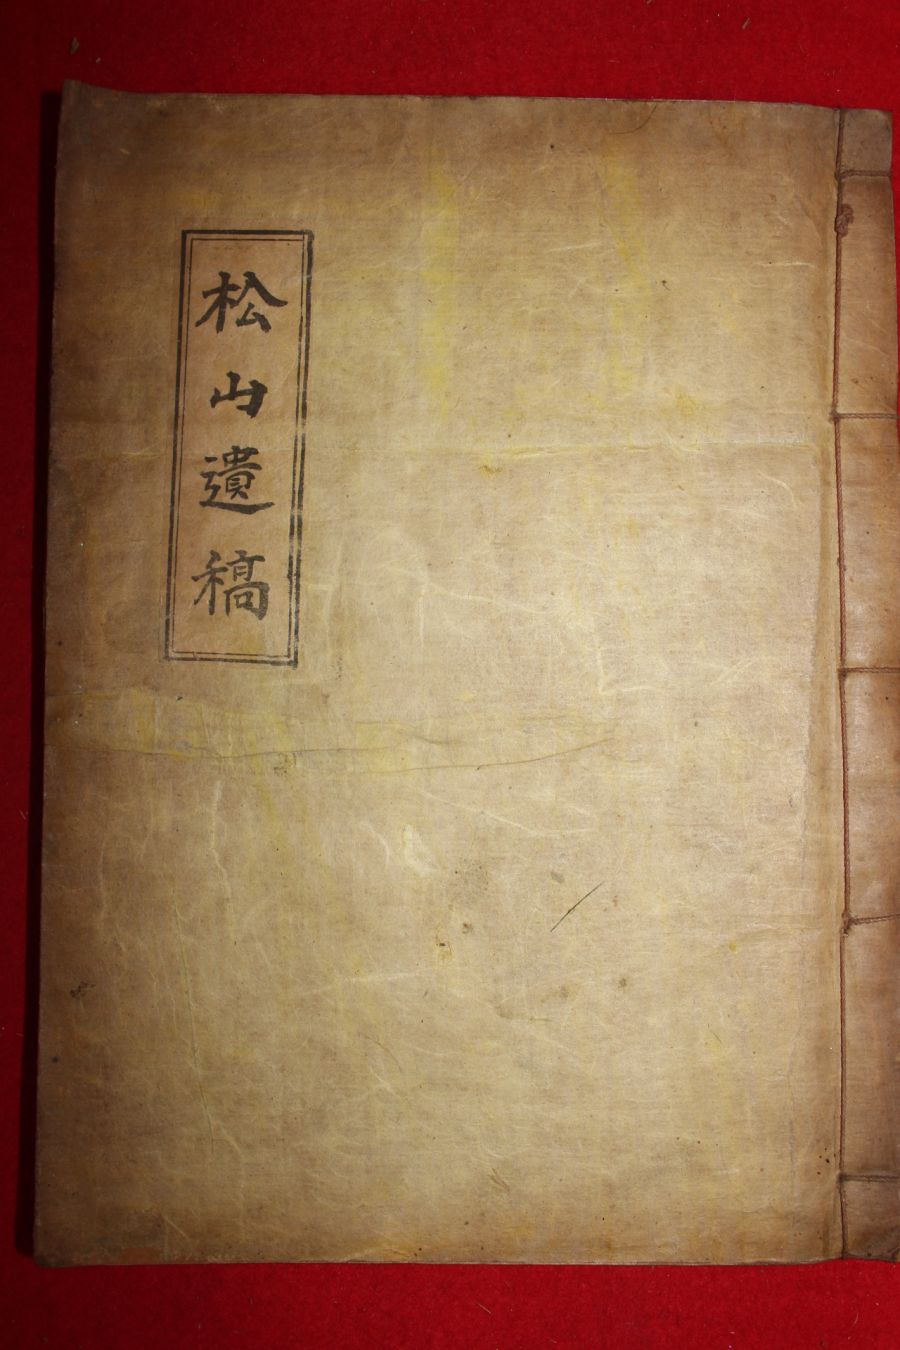 松山遺稿